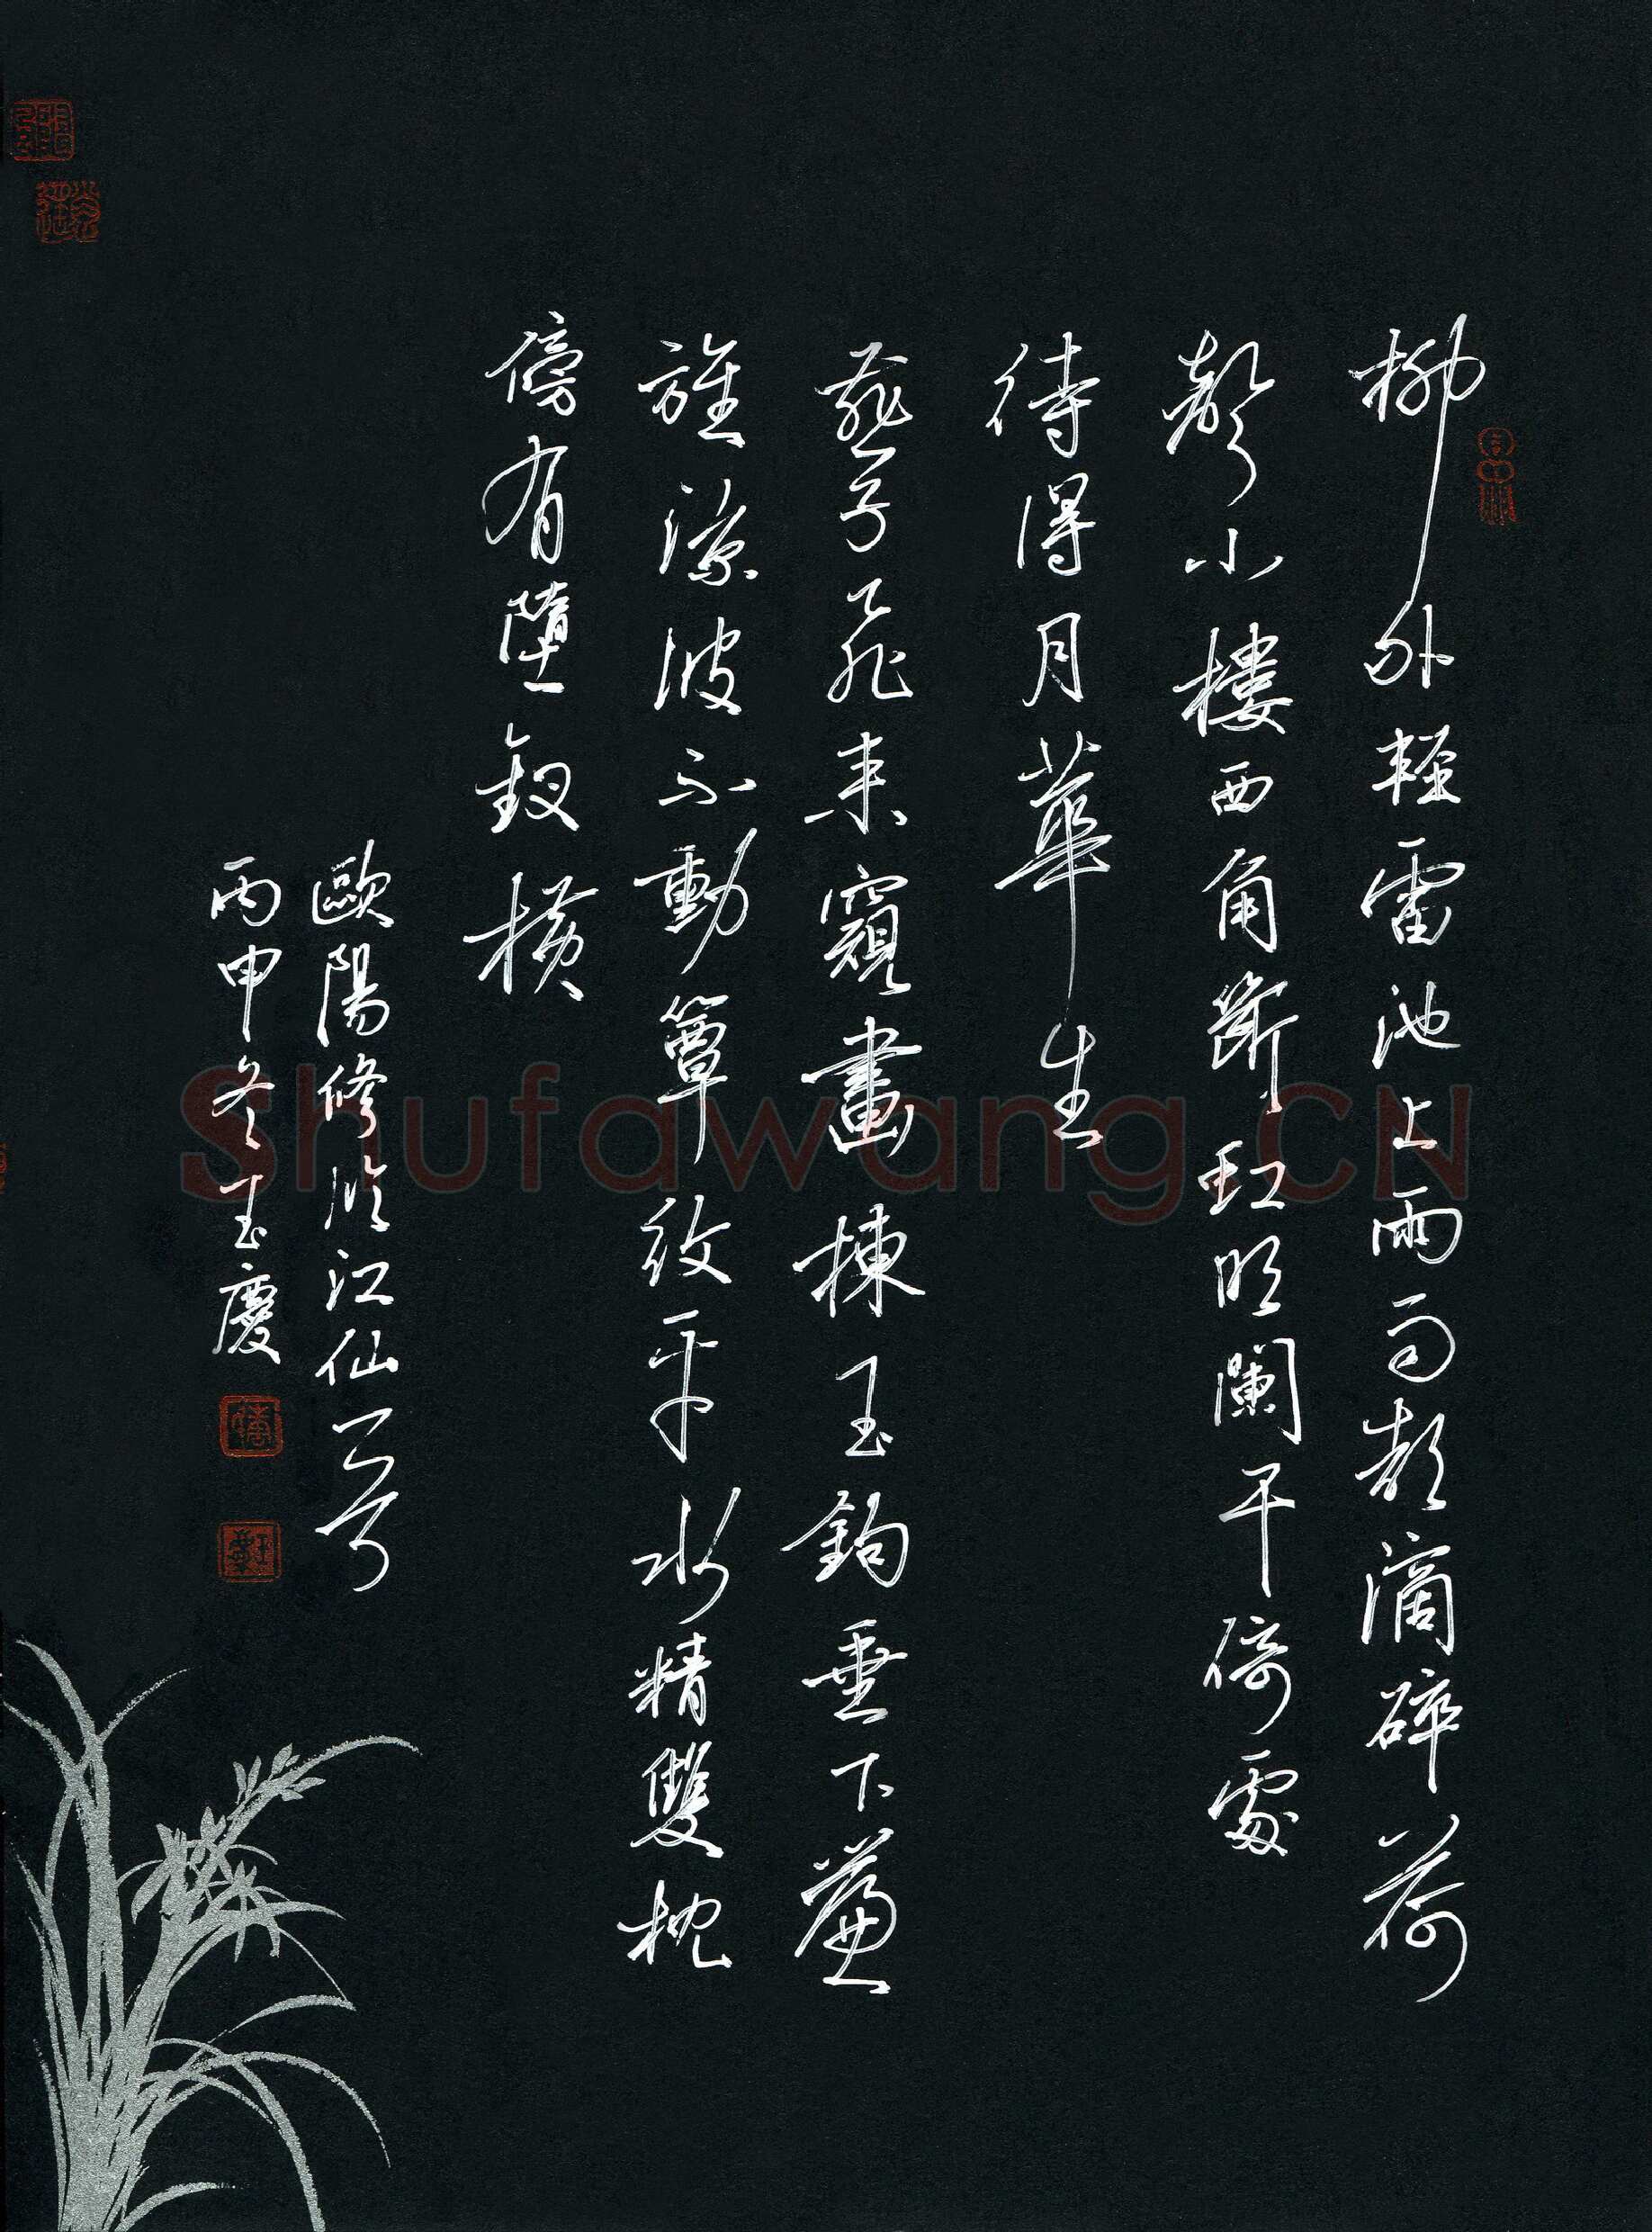 柳外輕雷池上雨雨聲滴碎荷
聲小樓西角斷虹明闌干倚處
待得月華生
燕子飛來窺畫棟玉鉤垂下簾
旌涼波不動簟紋平水精雙枕
傍有墮釵橫
歐陽修臨江仙一首
丙申冬玉慶
Shufawang.CN